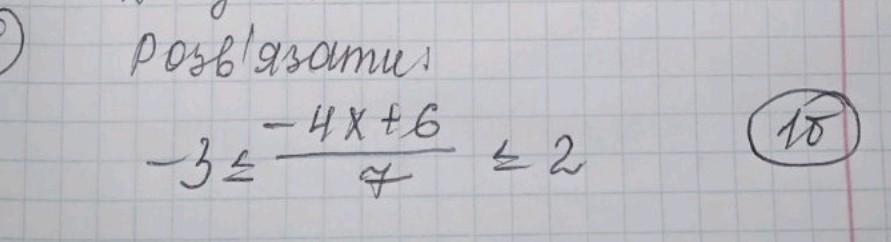 Розв'язати:
-3 ≤ \frac{-4x+6}{7} ≤ 2
1б